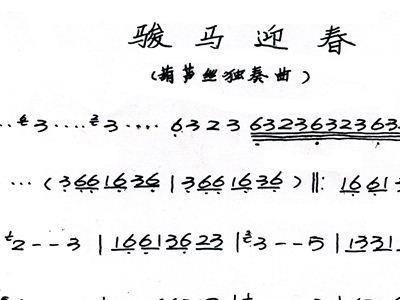 骏马迎春
(葫芦丝独奏曲)
3 .... 3 .... 6 3 2 3 6323632363
... (3661636 | 3661636) ‖: 16613
2 - - 3 | 16613623 | 3 - - 5 | 1331